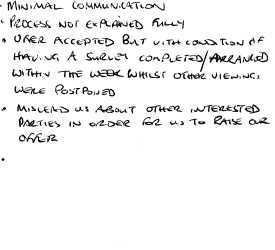 · MINIMAL COMMUNICATION
· PROCESS NOT EXPLAINED FULLY
· OFFER ACCEPTED BUT WITH CONDITION OF
HAVING A SURVEY COMPLETED/ARRANGED
WITHIN THE WEEK WHILST OTHER VIEWINGS
WERE POSTPONED
· MISLEAD US ABOUT OTHER INTERESTED
PARTIES IN ORDER FOR US TO RAISE OUR
OFFER
·